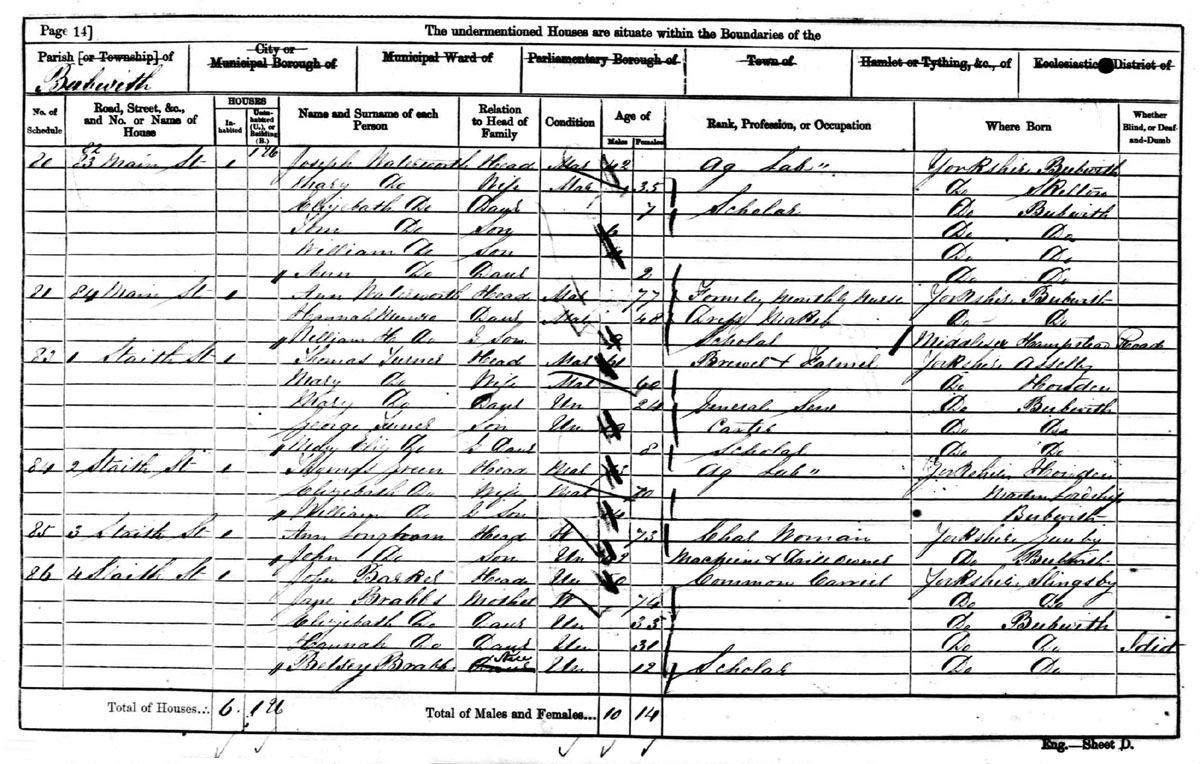 Page 14] The undermentioned Houses are situate within the Boundaries of the
Parish [or Township] of City or Municipal Borough of Municipal Ward of Parliamentary Borough of Town of Hamlet or Tything, &c., of Ecclesiastical District of
Bubwith
No. of Schedule Road, Street, &c., and No. or Name of House HOUSES Inhabited Uninhabited (U.), or Building (B.) Name and Surname of each Person Relation to Head of Family Condition Age of Males Females Rank, Profession, or Occupation Where Born Whether Blind, or Deaf-and-Dumb
20 23 Main St 1 Joseph Waterworth Head Mar 42 Ag Lab Yorkshire Bubwith
Mary Do Wife Mar 35 Do Skelton
Elizabeth Do Daur 7 Scholar Do Bubwith
Do Son 6 Do Do
William Do Son Do Do
Ann Do Daur 2 Do Do
21 24 Main St 1 Ann Waterworth Head 77 Formerly Monthly Nurse Yorkshire Bubwith
Hannah Munro Daur 48 Dress Maker Do Do
William H. Do G Son Scholar Middlesex Hampstead Road
1 Staith St 1 Thomas Turner Head Mar Brewer & Farmer Yorkshire Asselby
Mary Do Wife Mar 60 Do Howden
Mary Do Daur Un 24 General Serv Do Bubwith
George Turner Son Un Carter Do Do
Mary Eliz Do G Daur 8 Scholar Do Do
2 Staith St 1 Thomas Green Head Mar Ag Lab Yorkshire Howden
Elizabeth Do Wife Mar 70
William Do G Son Bubwith
25 3 Staith St 1 Ann Head W 73 Char Woman Yorkshire
John Do Son Un Machine & Drill Owner Do Bubwith
26 4 Staith St 1 John Barker Head Un Common Carrier Yorkshire Slingsby
Jane Brabbs Mother W 74 Do Do
Elizabeth Do Daur Un 35 Do Bubwith
Hannah Do Daur Un 31 Do Do Idiot
Betsey Brabbs Niece Un 12 Scholar Do Do
Total of Houses... 6 Total of Males and Females... 10 14
Eng.—Sheet D.